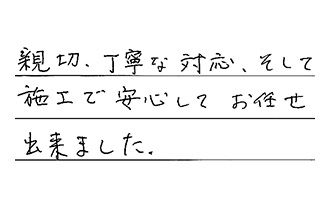 親切、丁寧な対応、そして
施工で安心してお任せ
出来ました。